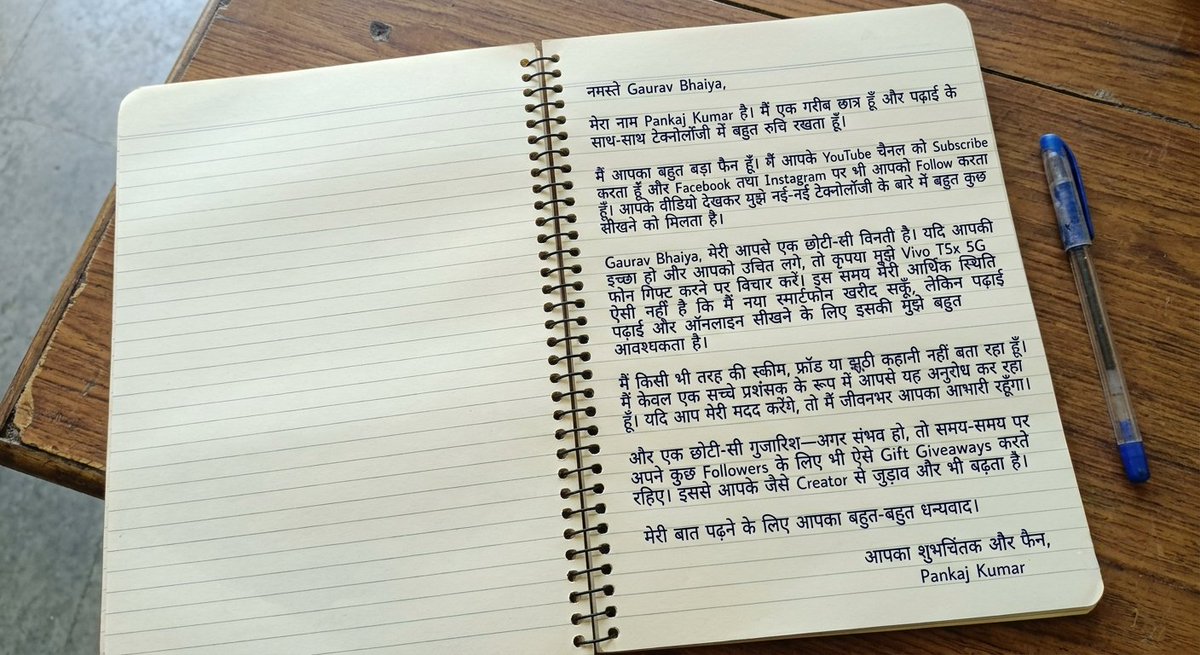 नमस्ते Gaurav Bhaiya,
मेरा नाम Pankaj Kumar है। मैं एक गरीब छात्र हूँ और पढ़ाई के
साथ-साथ टेक्नोलॉजी में बहुत रुचि रखता हूँ।
मैं आपका बहुत बड़ा फैन हूँ। मैं आपके YouTube चैनल को Subscribe
करता हूँ और Facebook तथा Instagram पर भी आपको Follow करता
हूँ। आपके वीडियो देखकर मुझे नई-नई टेक्नोलॉजी के बारे में बहुत कुछ
सीखने को मिलता है।
Gaurav Bhaiya, मेरी आपसे एक छोटी-सी विनती है। यदि आपकी
इच्छा हो और आपको उचित लगे, तो कृपया मुझे Vivo T5x 5G
फोन गिफ्ट करने पर विचार करें। इस समय मेरी आर्थिक स्थिति
ऐसी नहीं है कि मैं नया स्मार्टफोन खरीद सकूँ, लेकिन पढ़ाई
पढ़ाई और ऑनलाइन सीखने के लिए इसकी मुझे बहुत
आवश्यकता है।
मैं किसी भी तरह की स्कीम, फ्रॉड या झूठी कहानी नहीं बता रहा हूँ।
मैं केवल एक सच्चे प्रशंसक के रूप में आपसे यह अनुरोध कर रहा
हूँ। यदि आप मेरी मदद करेंगे, तो मैं जीवनभर आपका आभारी रहूँगा।
और एक छोटी-सी गुजारिश—अगर संभव हो, तो समय-समय पर
अपने कुछ Followers के लिए भी ऐसे Gift Giveaways करते
रहिए। इससे आपके जैसे Creator से जुड़ाव और भी बढ़ता है।
मेरी बात पढ़ने के लिए आपका बहुत-बहुत धन्यवाद।
आपका शुभचिंतक और फैन,
Pankaj Kumar